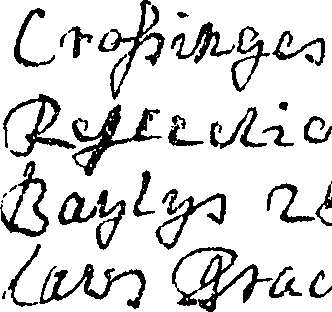 Croſsinges
Reflectio
Baylys 2
Caws Grac